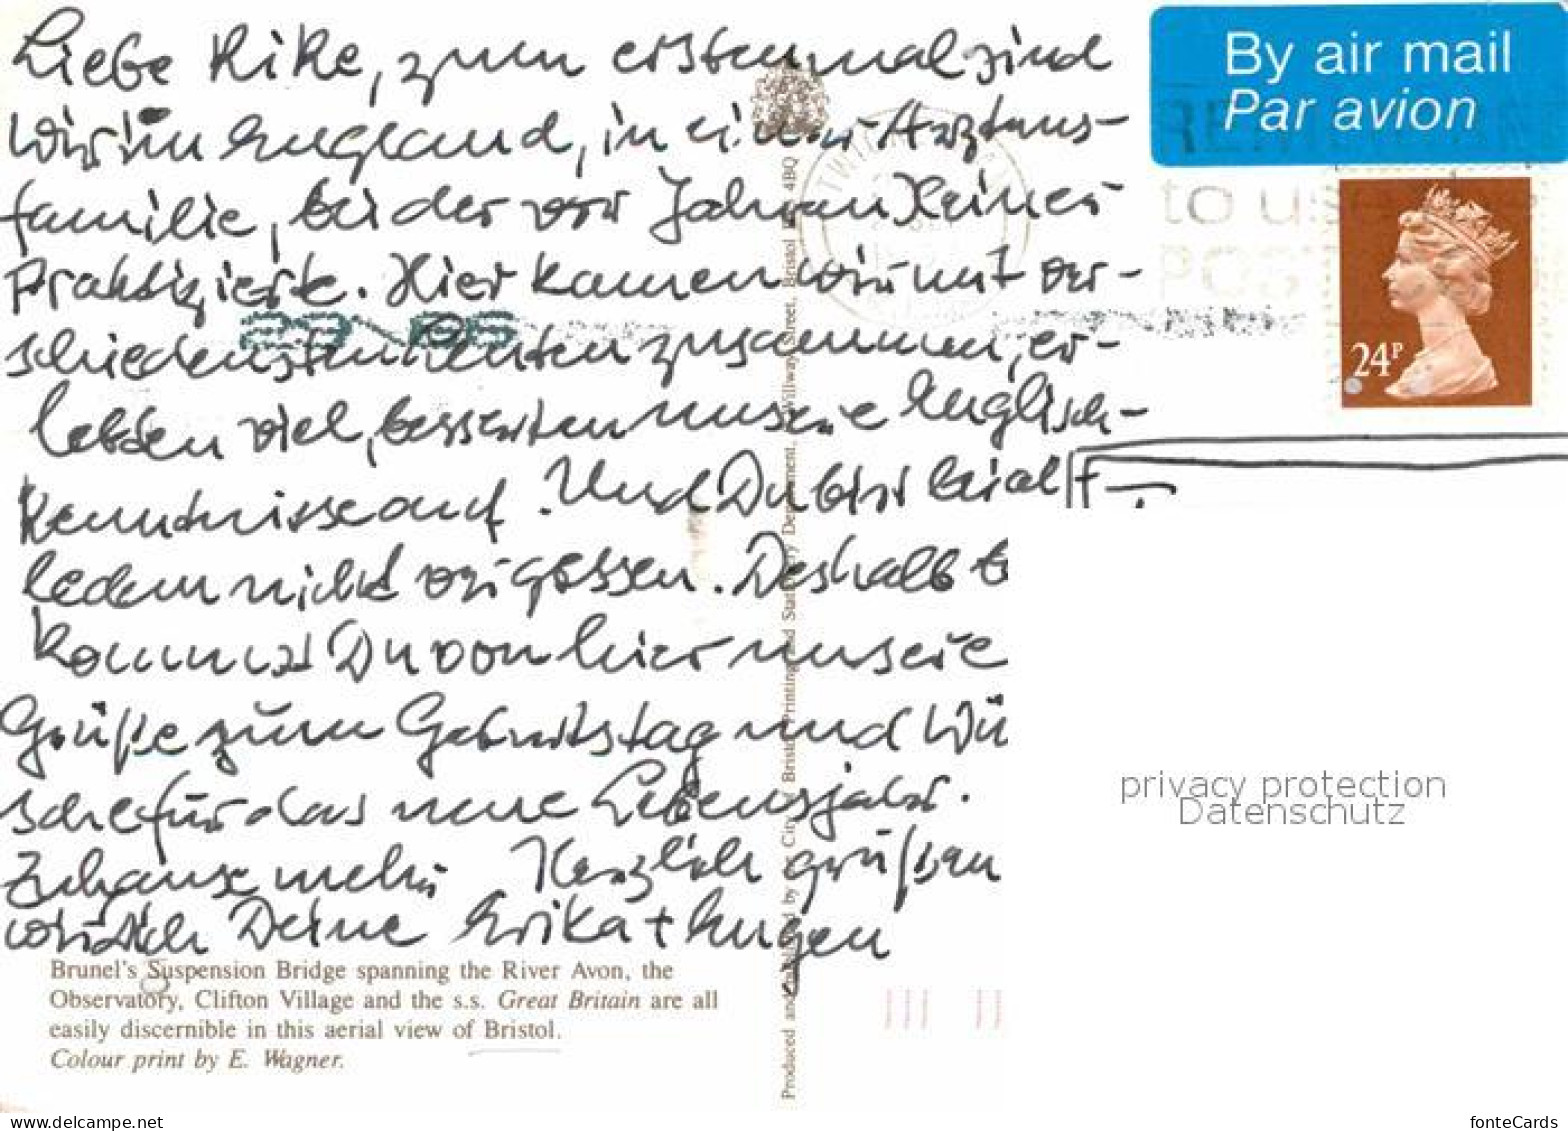 Liebe Rike, zum erstenmal sind
wir in England, in einer Arztens-
familie, bei der vor Jahren Reiner
praktizierte. Hier kamen wir mit ver-
schiedensten Leuten zusammen, er-
lebten viel, besserten unsere Englisch-
kenntnisse auf. Und Du bist bei all-
ledem nicht vergessen. Deshalb b
kommst Du von hier unsere
Grüße zum Geburtstag und wü
sche für das neue Lebensjahr.
Zuhause mehr. Herzlich grüßen
Dich Deine Erika + Eugen
By air mail
Par avion
to us
POST
24P
Brunel's Suspension Bridge spanning the River Avon, the
Observatory, Clifton Village and the s.s. Great Britain are all
easily discernible in this aerial view of Bristol.
Colour print by E. Wagner.
Produced and published by City of Bristol Printing and Stationery Department, Williway Street, Bristol 4BQ
privacy protection
Datenschutz
www.delcampe.net
fonteCards